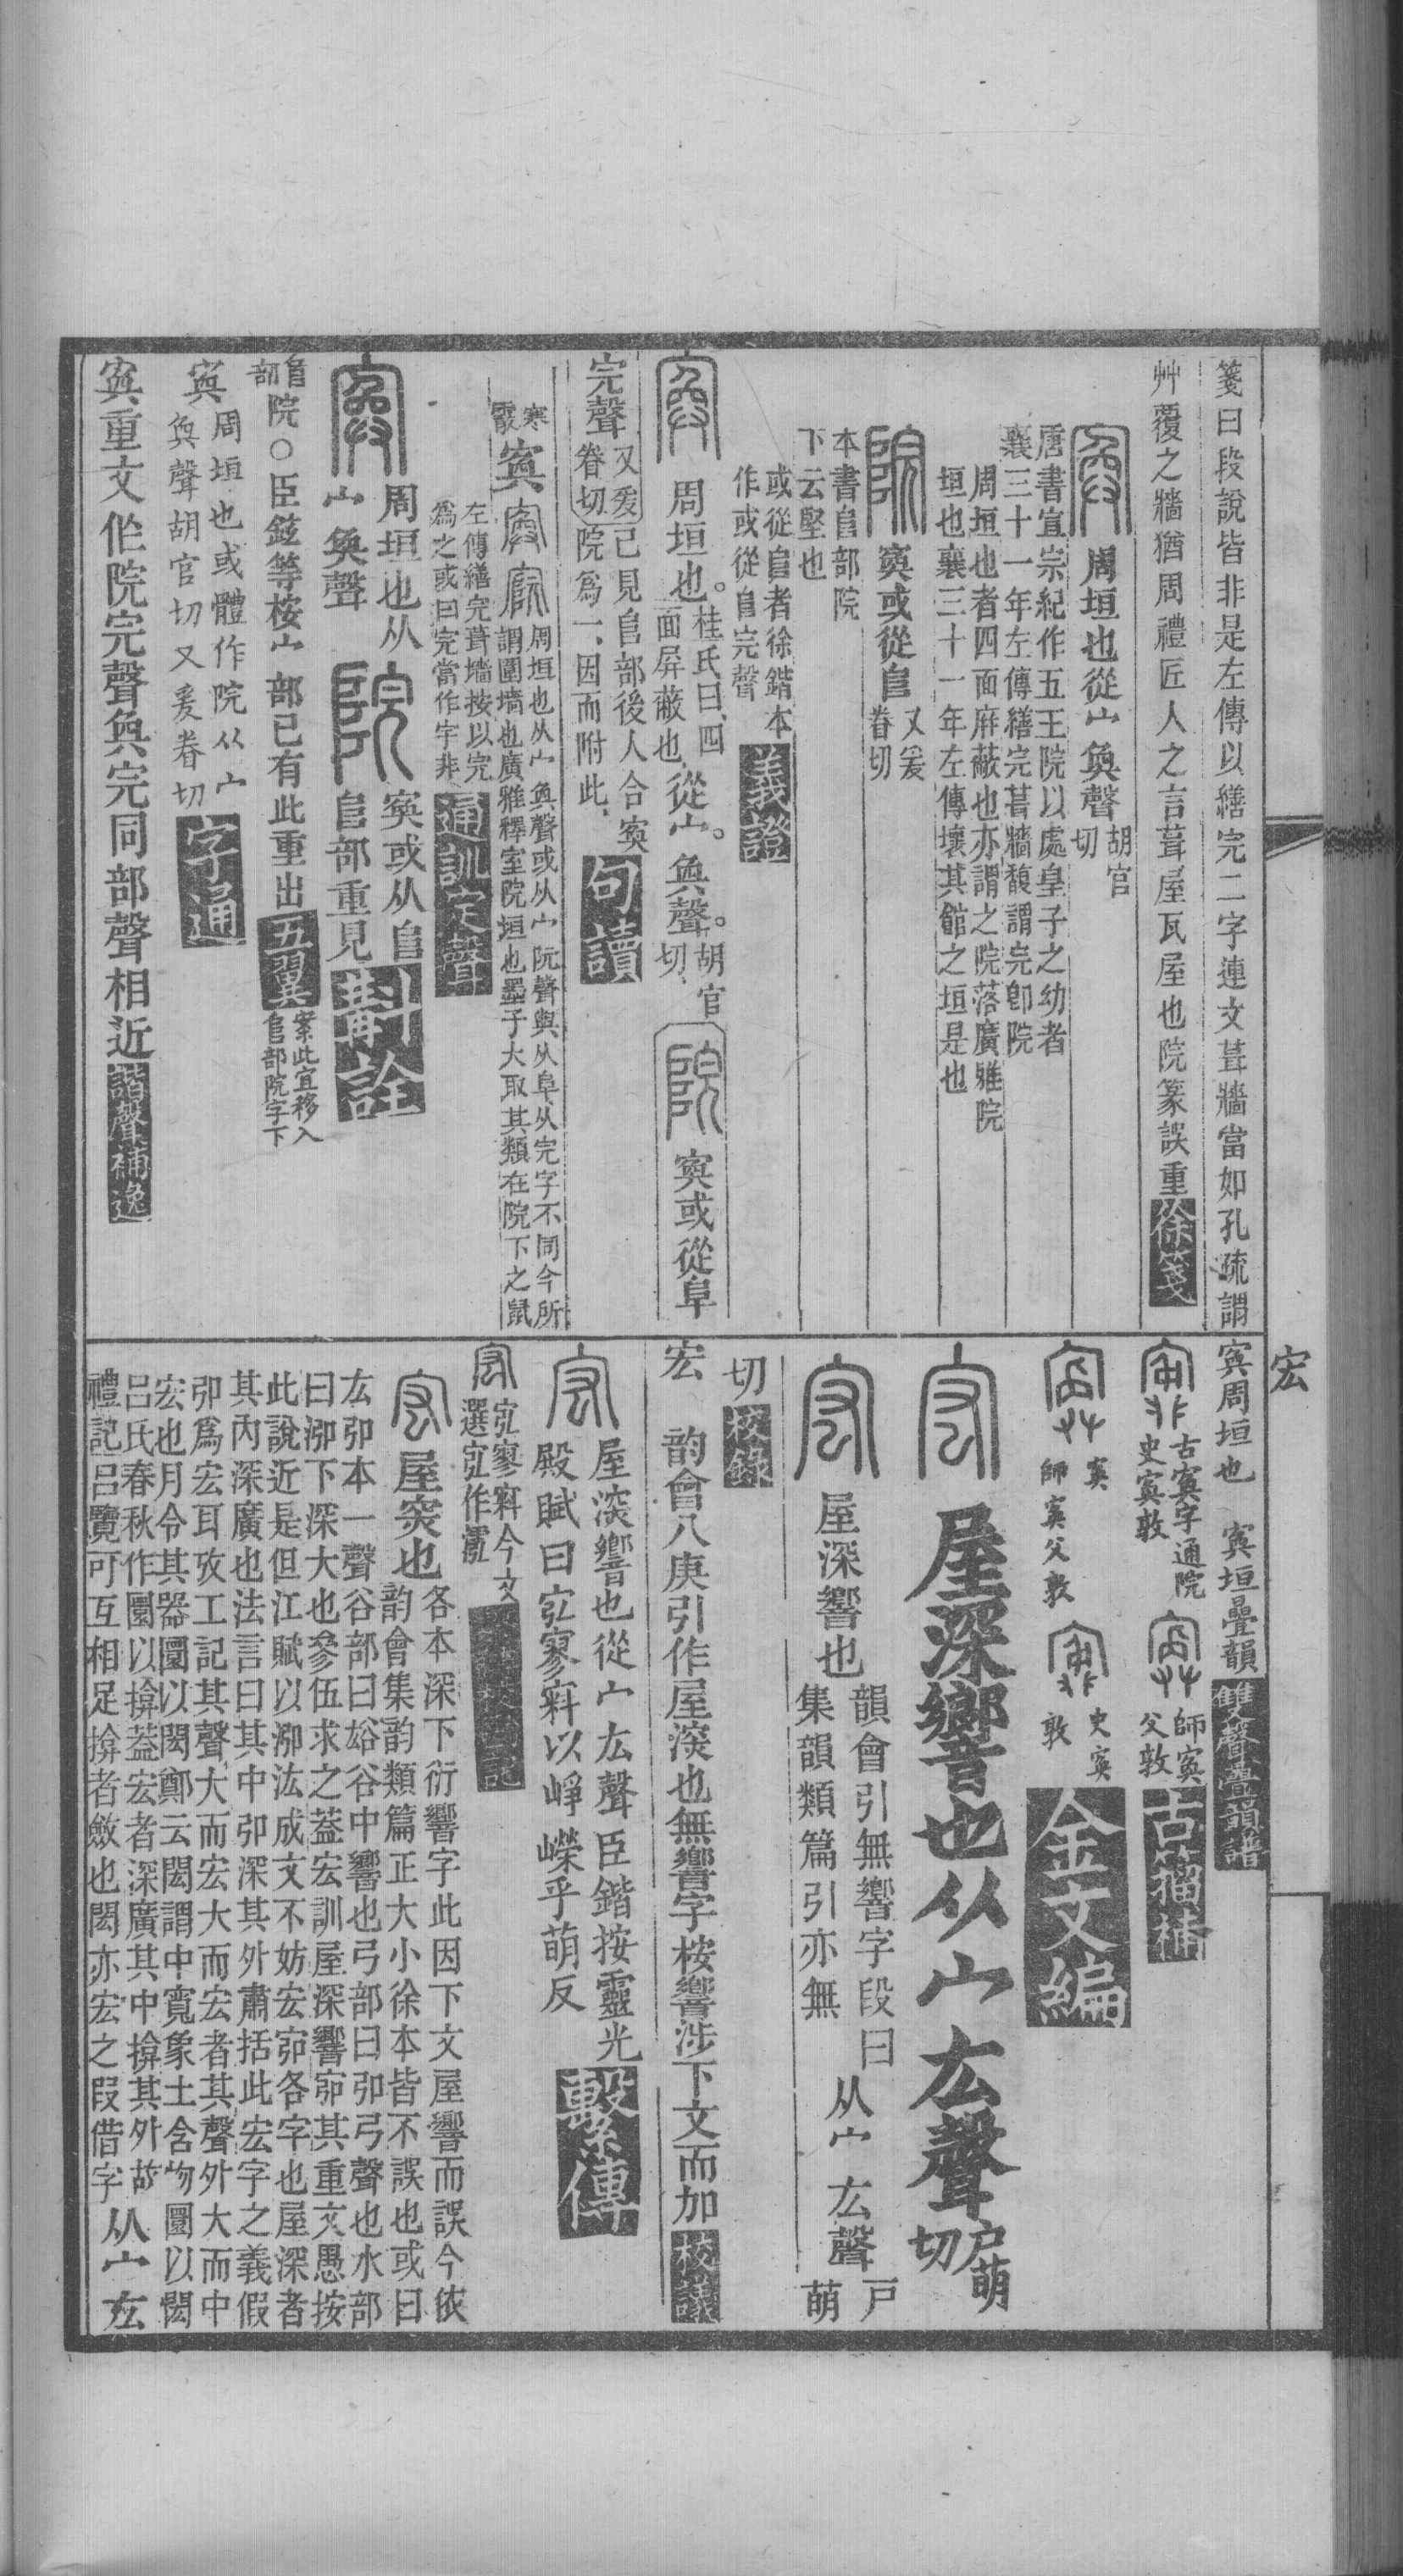 箋曰段說皆非是左傳以繕完二字連文葺牆當如孔疏謂
艸覆之牆猶周禮匠人之言葺屋瓦屋也院篆誤重徐箋
周垣也從宀奐聲胡官切
唐書宣宗紀作五王院以處皇子之幼者
襄三十一年左傳繕完葺牆馥謂完卽院
周垣也者四面庰蔽也亦謂之院落廣雅院
垣也襄三十一年左傳壞其館之垣是也
寏或從𨸏又爰眷切
本書𨸏部院
下云堅也
或從𨸏者徐鍇本
作或從𨸏完聲義證
周垣也。桂氏曰、四面屛蔽也、從宀。奐聲。胡官切、
寏或從阜
完聲又爰眷切
已見𨸏部後人合寏
院爲一、因而附此、句讀
寒
寏
周垣也从宀奐聲或从宀阮聲與从阜从完字不同今所
謂圍墻也廣雅釋室院垣也墨子大取其類在院下之鼠
左傳繕完葺墻按以完
爲之或曰完當作宇非通訓定聲
周垣也从宀奐聲
寏或从𨸏𨸏部重見斠詮
𨸏部院○臣鉉等桉宀部已有此重出五翼
案此宜移入𨸏部院字下
寏周垣也或體作院从宀
奐聲胡官切又爰眷切字通
寏重文作院完聲奐完同部聲相近諧聲補逸
宏
寏周垣也 寏垣疊韻雙聲疊韻譜
古寏字通院
史寏敦
師寏父敦古籀補
寏
師寏父敦
史寏敦
金文編
屋深響也从宀厷聲戶萌切
屋深響也韻會引無響字段曰集韻類篇引亦無从宀厷聲戶萌
切校錄
宏 韵會八庚引作屋深也無響字桉響涉下文而加校議
屋深響也從宀厷聲臣鍇按靈光
殿賦曰宖寥窲以崢嶸乎萌反繫傳
宖寥窲今文
選宖作
屋㴱也各本深下衍響字此因下文屋響而誤今依
韵會集韵類篇正大小徐本皆不誤也或曰
厷弘本一聲谷部曰谹谷中響也弓部曰弘弓聲也水部
曰泓下深大也參伍求之蓋宏訓屋深響宖其重文愚按
此說近是但江賦以泓汯成文不妨宏宖各字也屋深者
其內深廣也法言曰其中弘深其外肅括此宏字之義假
弘爲宏耳攷工記其聲大而宏大而宏者其聲外大而中
宏也月令其器圜以閎鄭云閎謂中寬象土含物圜以閎
呂氏春秋作圜以揜蓋宏者深廣其中揜其外故
禮記呂覽可互相足揜者斂也閎亦宏之叚借字从宀厷